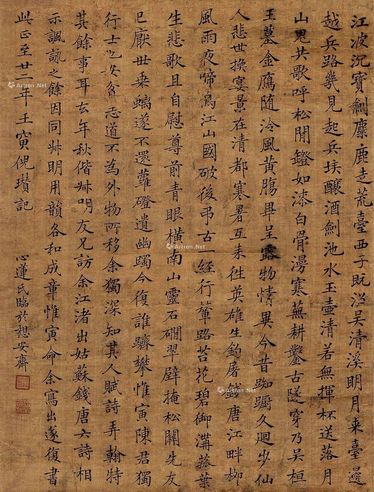 江波沉寶劍麋鹿走荒臺西子既沒吳清溪明月來臺邊
越兵路幾見起兵埃釃酒劍池水玉壺清若無揮杯送落月
山鬼共歌呼松闇鐙如漆白骨漫寒蕪耕鑿古隧穿乃吳桓
王墓金雁隨冷風黃腸畢呈露物情異今昔踟躕久迴步仙
人悲世換宴景在清都寒暑互來往英雄生釣屠錢唐江畔柳
風雨夜啼烏江山國破後弔古一經行輦路苔花碧御溝菰葉
生悲歌且自慰尊前青眼橫南山靈石磵翠壁掩松關先友
已厭世乘螭遂不還蘿磴遺幽躅今復誰躋攀惟寅陳君獨
行士也安忘道不為外物所移余獨深知其人賦詩弄翰特
其餘事耳玄年秋偕叔明友兄訪余江渚出姑蘇錢唐六詩相
示諷詠之餘因同叔明用韻各和成章惟寅命余寫出遂復書
此正至廿二年壬寅倪瓚記
心蓮氏臨於想安齋